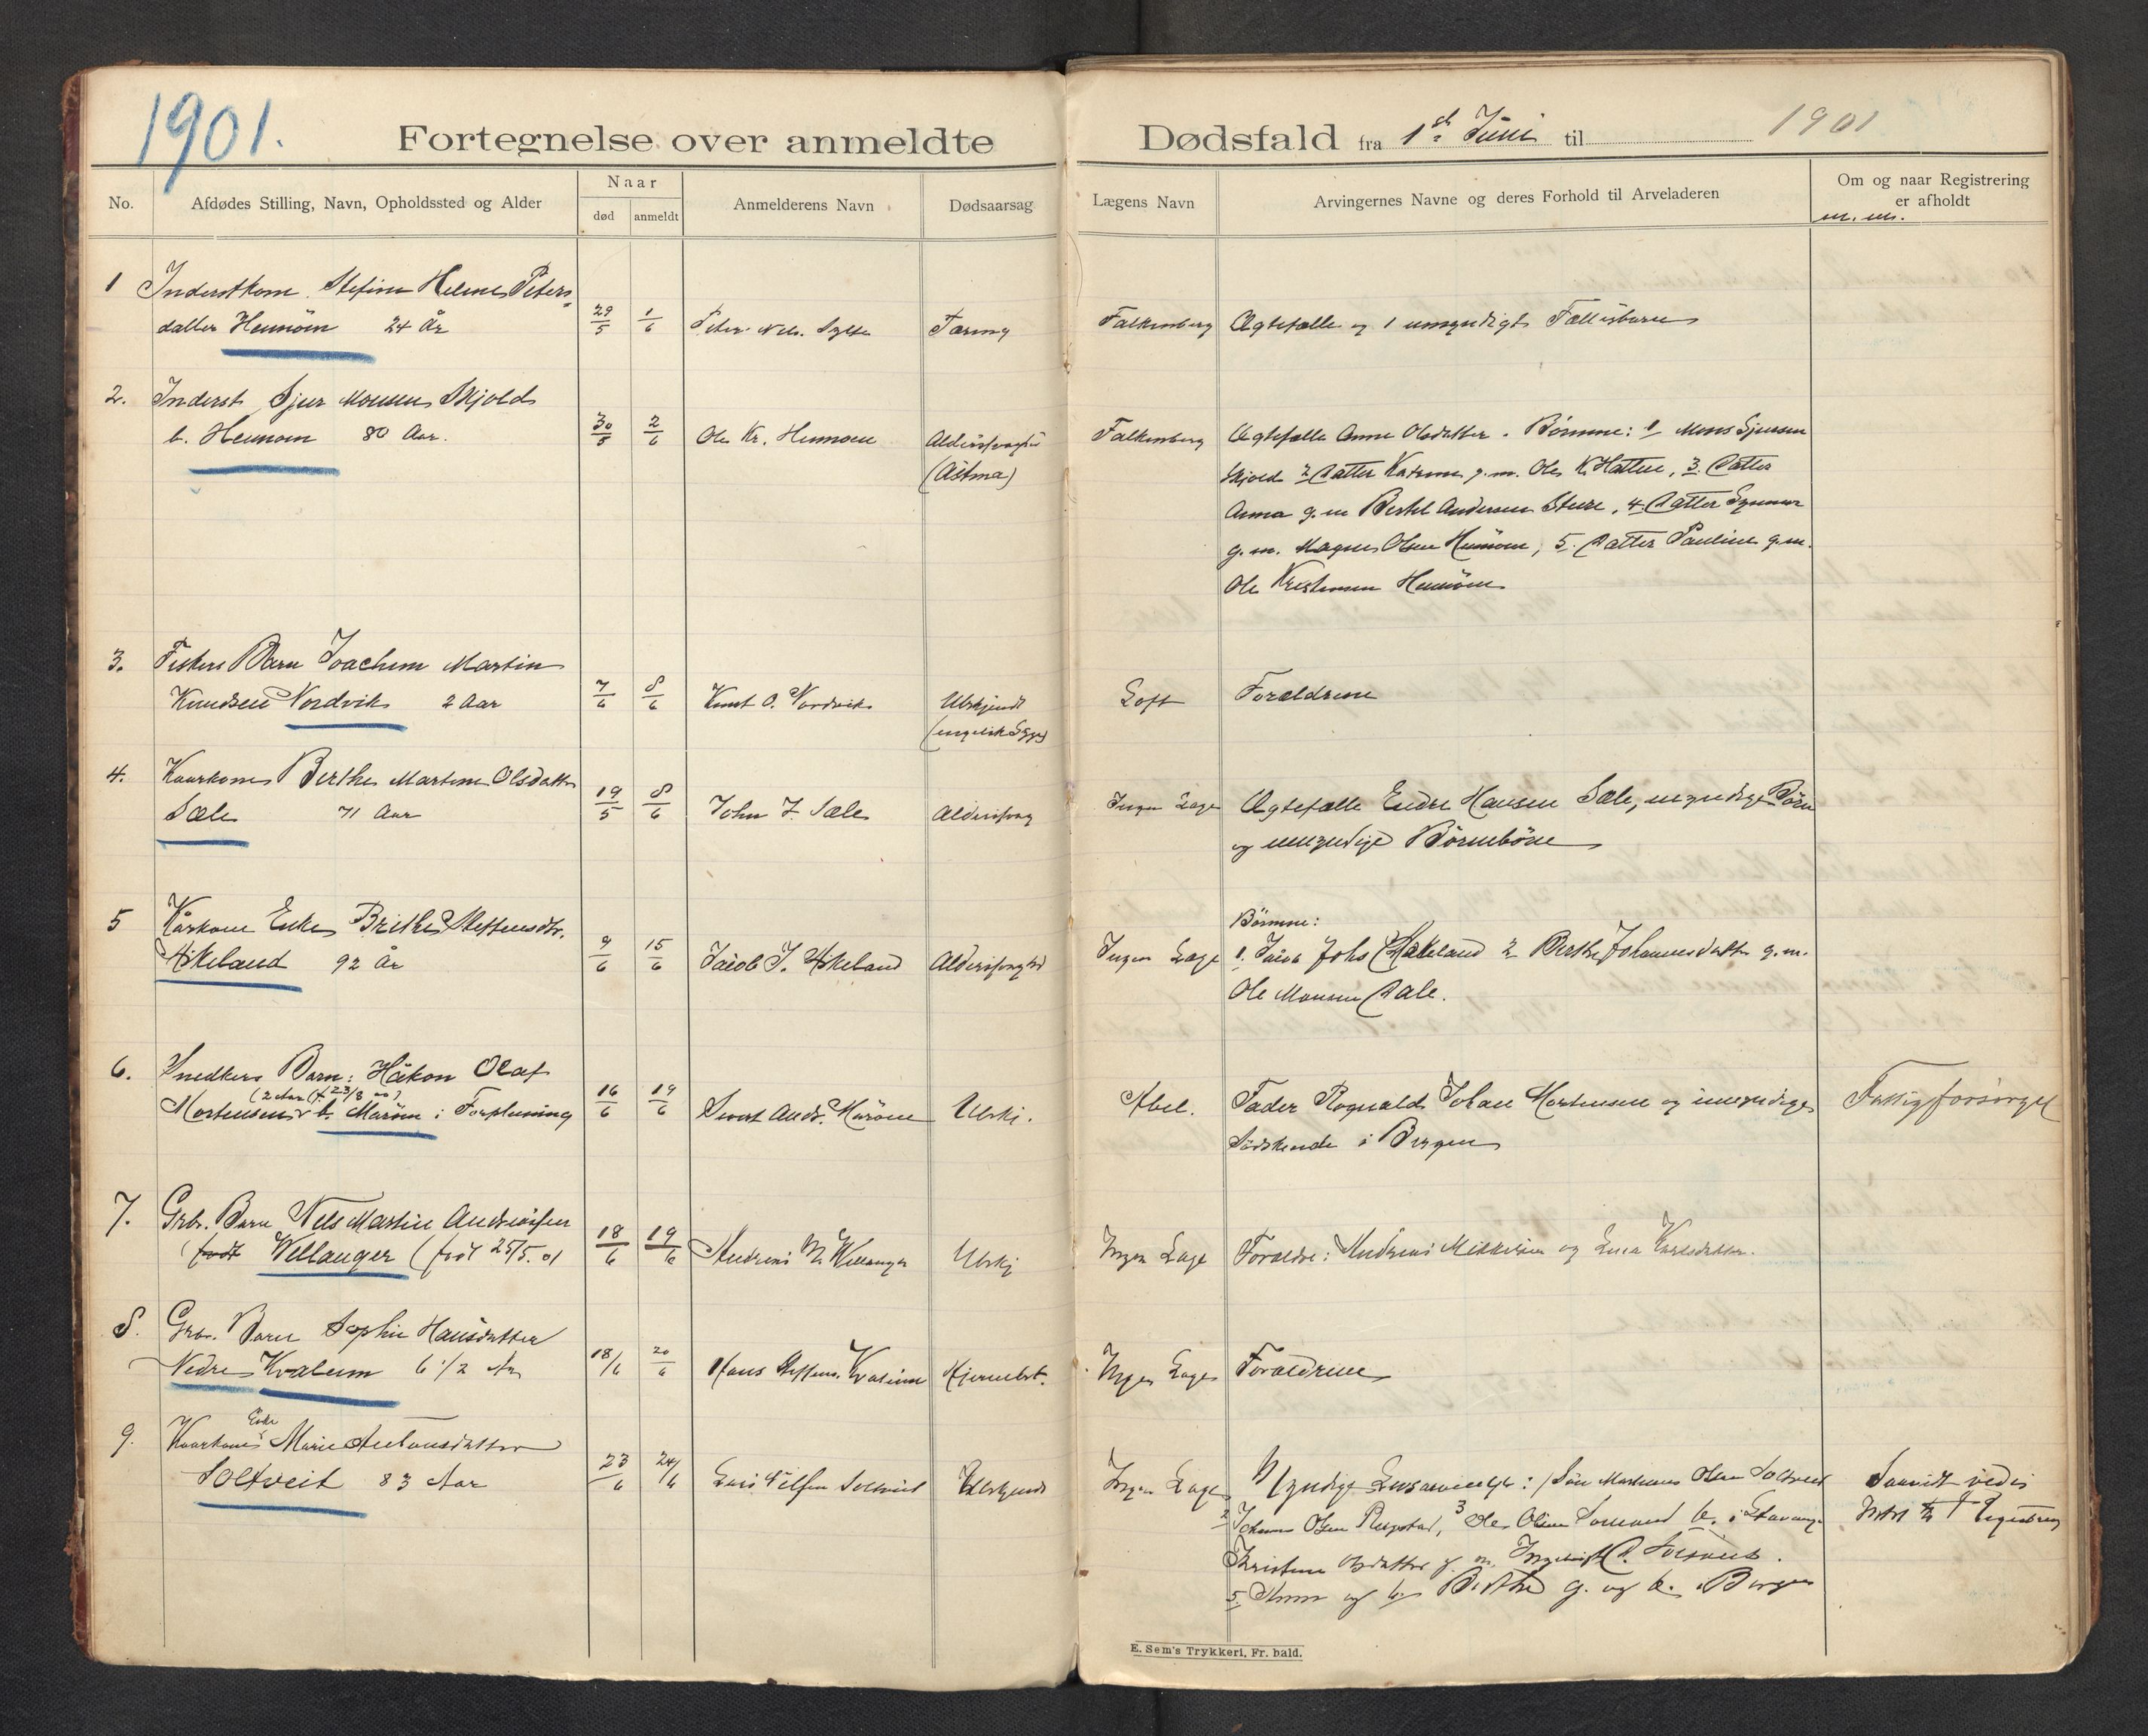 1901.
Fortegnelse over anmeldte Dødsfald fra 1ste Juni til 1901
No. Afdødes Stilling, Navn, Opholdssted og Alder Naar død anmeldt Anmelderens Navn Dødsaarsag Lægens Navn Arvingernes Navne og deres Forhold til Arveladeren Om og naar Registrering er afholdt
m. m.
1 Inderstkone Stefine Helene Peters-
datter Hennöen 24 År 29/5 1/6 Peter Nils. Tæring Falkenberg Ægtefælle og 1 umyndigt Fællesbarn
2. Inderst Sjur Monsen Skjold
b. Hennoen 80 Aar. 30/5 2/6 Ole Kr. Hennoen Alderssvaghed Falkenberg Ægtefælle Anne Olsdatter. Börnene: 1 Mons Sjursen
(Astma) Skjold 2 Datter Katrine g. m. Ole K. Hatten, 3. Datter
Anna g. m Bertel Andersen Sture, 4. Datter Synneve
g. m. Magnus Olsen Hennöen, 5. Datter Pauline g. m.
Ole Kristensen Hennöen
3. Fiskers Barn Joachim Martin
Knudsen Nordvik 2 Aar 7/6 8/6 Knut O. Nordvik Ubekjendt Loft Forældrene
(engelsk Syge)
4. Kaarkone Berthe Martine Olsdatter
Sæle 71 Aar 19/5 8/6 John J. Sæle Alderssvag Ingen Læge Ægtefælle Endre Hansen Sæle, myndige Börn
og umyndige Börnebörn
5 Kårkone Enke Brithe Steffensdtr. Börnene:
Askeland 92 År 9/6 15/6 Jacob J. Askeland Alderssvaghed Ingen Læge 1. Jacob Johs Askeland 2 Berthe Johannesdatter g. m.
Ole Monsen Dale.
6. Snedkers Barn: Håkon Olaf
(2 Aar (f. 23/8
Mortensen b. Maröen i Forpleining 16/6 19/6 Sivert Ands. Maröen Ubekj. Abel. Fader Rognald Johan Mortensen og umyndige Fattigforsörget
Södskende i Bergen
7. Grbr. Barn Nils Martin Andreassen
(født Vellanger (født 25/5. 01 18/6 19/6 Andreas M. Vellanger Ubekj Ingen Læge Forældre: Andreas Mikkelsen og Karlsdatter.
8. Grbr. Barn Sophie Hansdatter
Nedre Kvalem 6 1/2 År 18/6 20/6 Hans Steffens. Kvalem Hjernebet. Ingen Læge Forældrene
Enke
9. Kaarkone Marie Antonsdatter
Soltveit 83 Aar 23/6 24/6 Lars Soltveit Ubekjendt Ingen Læge Myndige Livsarvinger: 1 Sön Olsen Soltveit Saavidt vides
2 Olsen 3 Ole Olsen b. i Stavanger Intet til Registrering
Kristine Olsdatter g. m.
5. Anna og 6. Berthe g. og b. i Bergen
E. Sem's Trykkeri, Fr. hald.